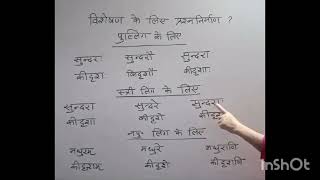 विशेषण के लिए प्रश्ननिर्माण ?
पुल्लिंग के लिए
सुन्दरः सुन्दरौ सुन्दराः
कीदृशः किदृशौ कीदृशाः
स्त्री लिंग के लिए
सुन्दरा सुन्दरे सुन्दराः
कीदृशा कीदृशे
नपु॰ लिंग के लिए
मधुरम् मधुरे मधुराणि
कीदृशम् कीदृशे कीदृशानि
InShOt